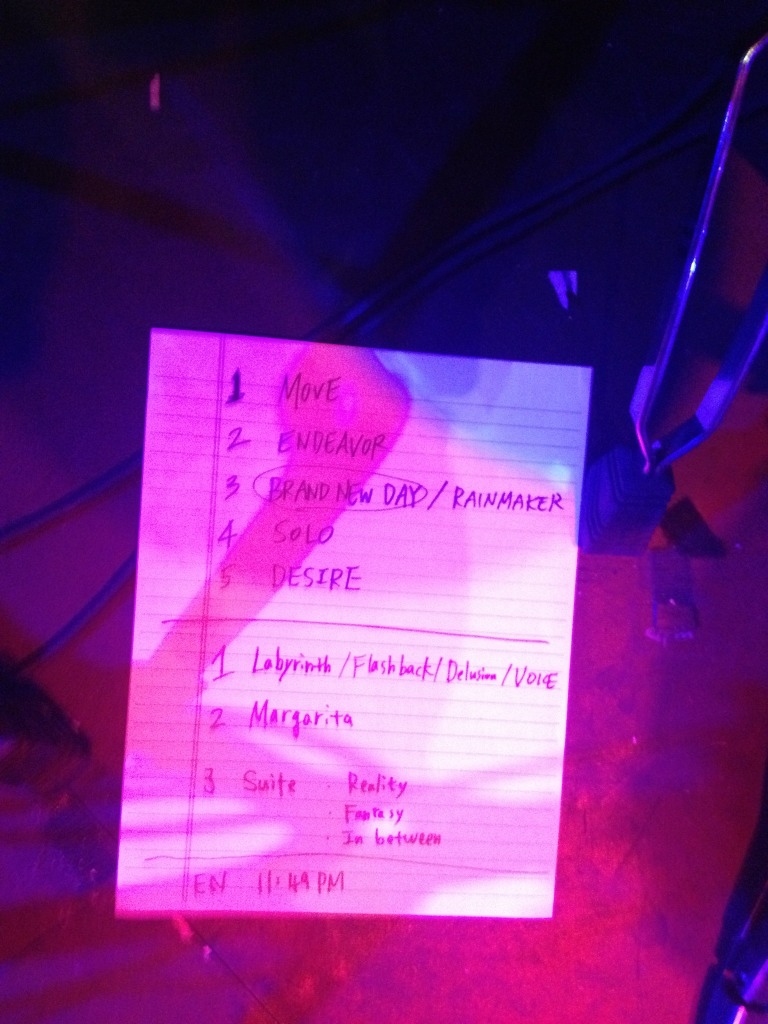 1 MOVE
2 ENDEAVOR
3 BRAND NEW DAY / RAINMAKER
4 SOLO
5 DESIRE
1 Labyrinth / Flashback / Delusion / VOICE
2 Margarita
3 Suite · Reality
· Fantasy
· In between
EN 11:49 PM